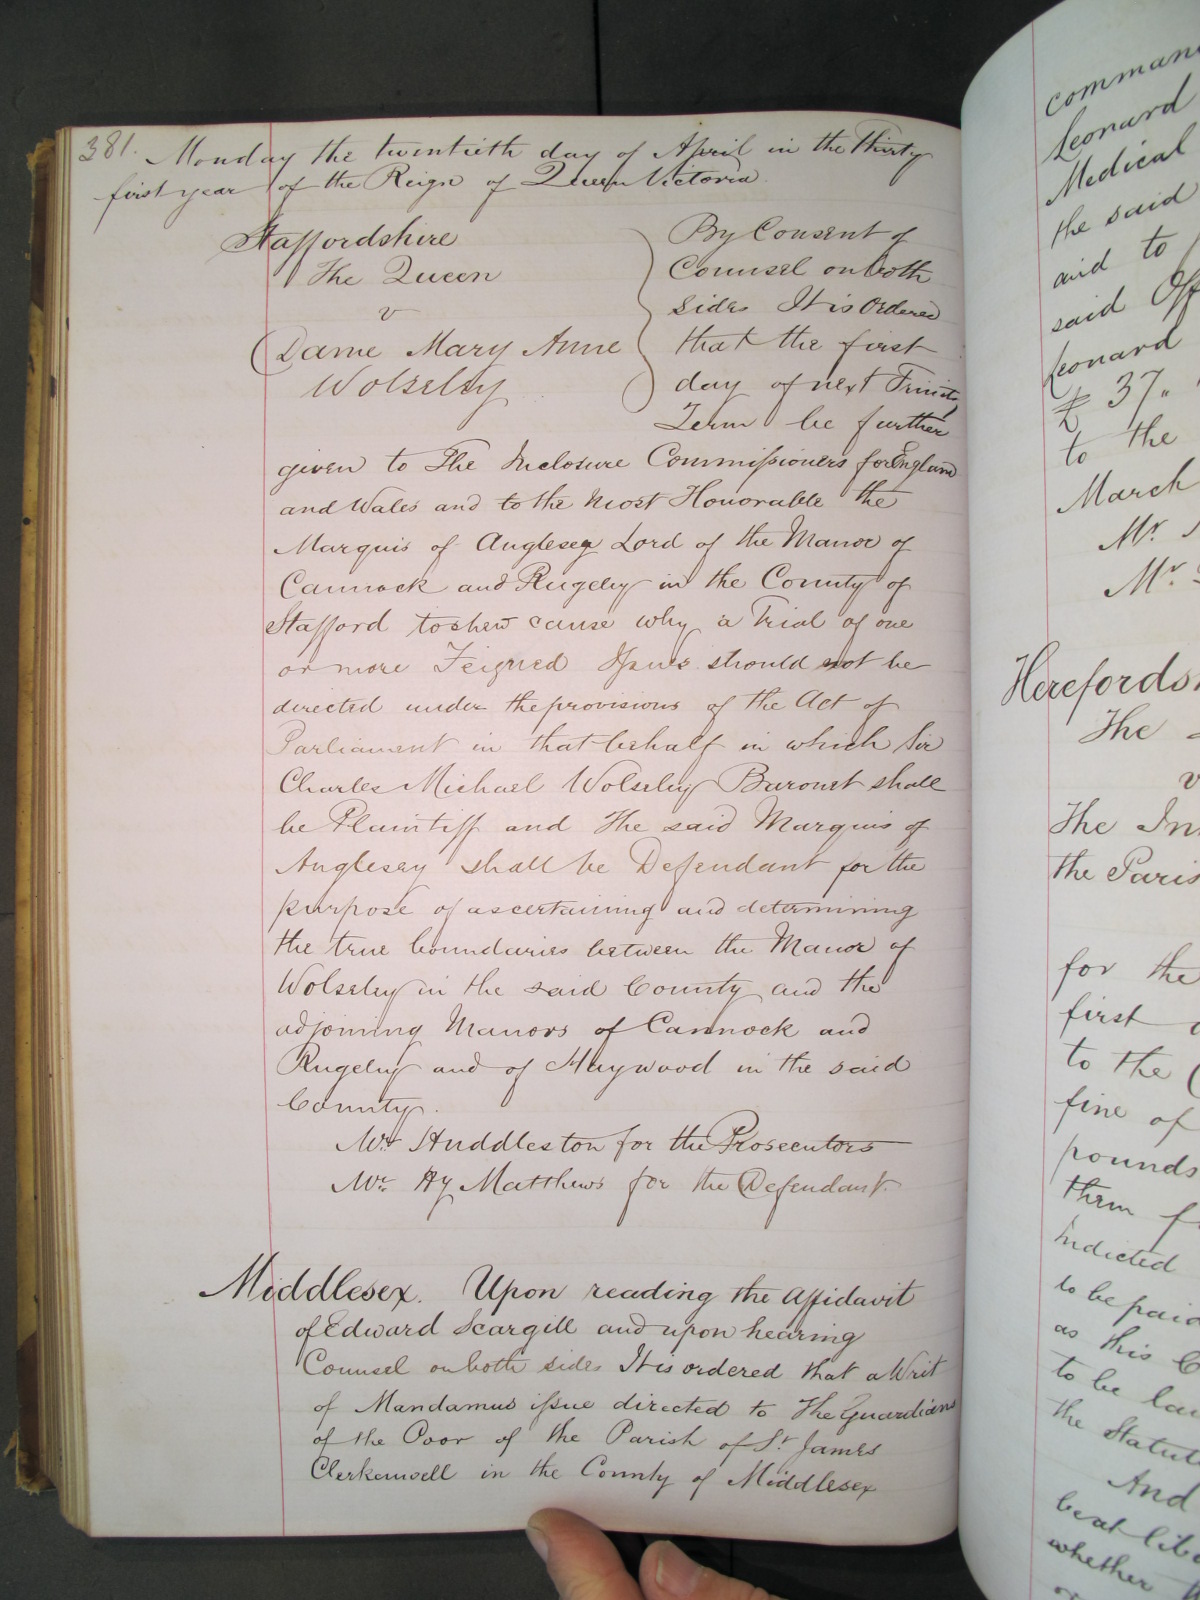 381. Monday the twentieth day of April in the Thirty
first year of the Reign of Queen Victoria.
Staffordshire
The Queen
v
Dame Mary Anne
Wolseley
By Consent of
Counsel on both
sides It is Ordered
that the first
day of next Trinity
Term be further
given to The Inclosure Commissioners for England
and Wales and to the Most Honorable the
Marquis of Anglesey Lord of the Manor of
Cannock and Rugeley in the County of
Stafford to shew cause why a Trial of one
or more Feigned Issues should not be
directed under the provisions of the Act of
Parliament in that behalf in which Sir
Charles Michael Wolseley Baronet shall
be Plaintiff and The said Marquis of
Anglesey shall be Defendant for the
purpose of ascertaining and determining
the true boundaries between the Manor of
Wolseley in the said County and the
adjoining Manors of Cannock and
Rugeley and of Haywood in the said
County.
Mr. Huddleston for the Prosecutors
Mr. Hy Matthews for the Defendant.
Middlesex. Upon reading the Affidavit
of Edward Scargill and upon hearing
Counsel on both sides It is ordered that a Writ
of Mandamus issue directed to The Guardians
of the Poor of the Parish of St. James
Clerkenwell in the County of Middlesex
Leonard
Medical
the said
and to
said
Leonard
£ 37"
to the
March
Mr.
Mr.
The
v
The
the
for the
first
to the
fine of
pounds
them
Indicted
to be paid
as this
to be
the
And
whether